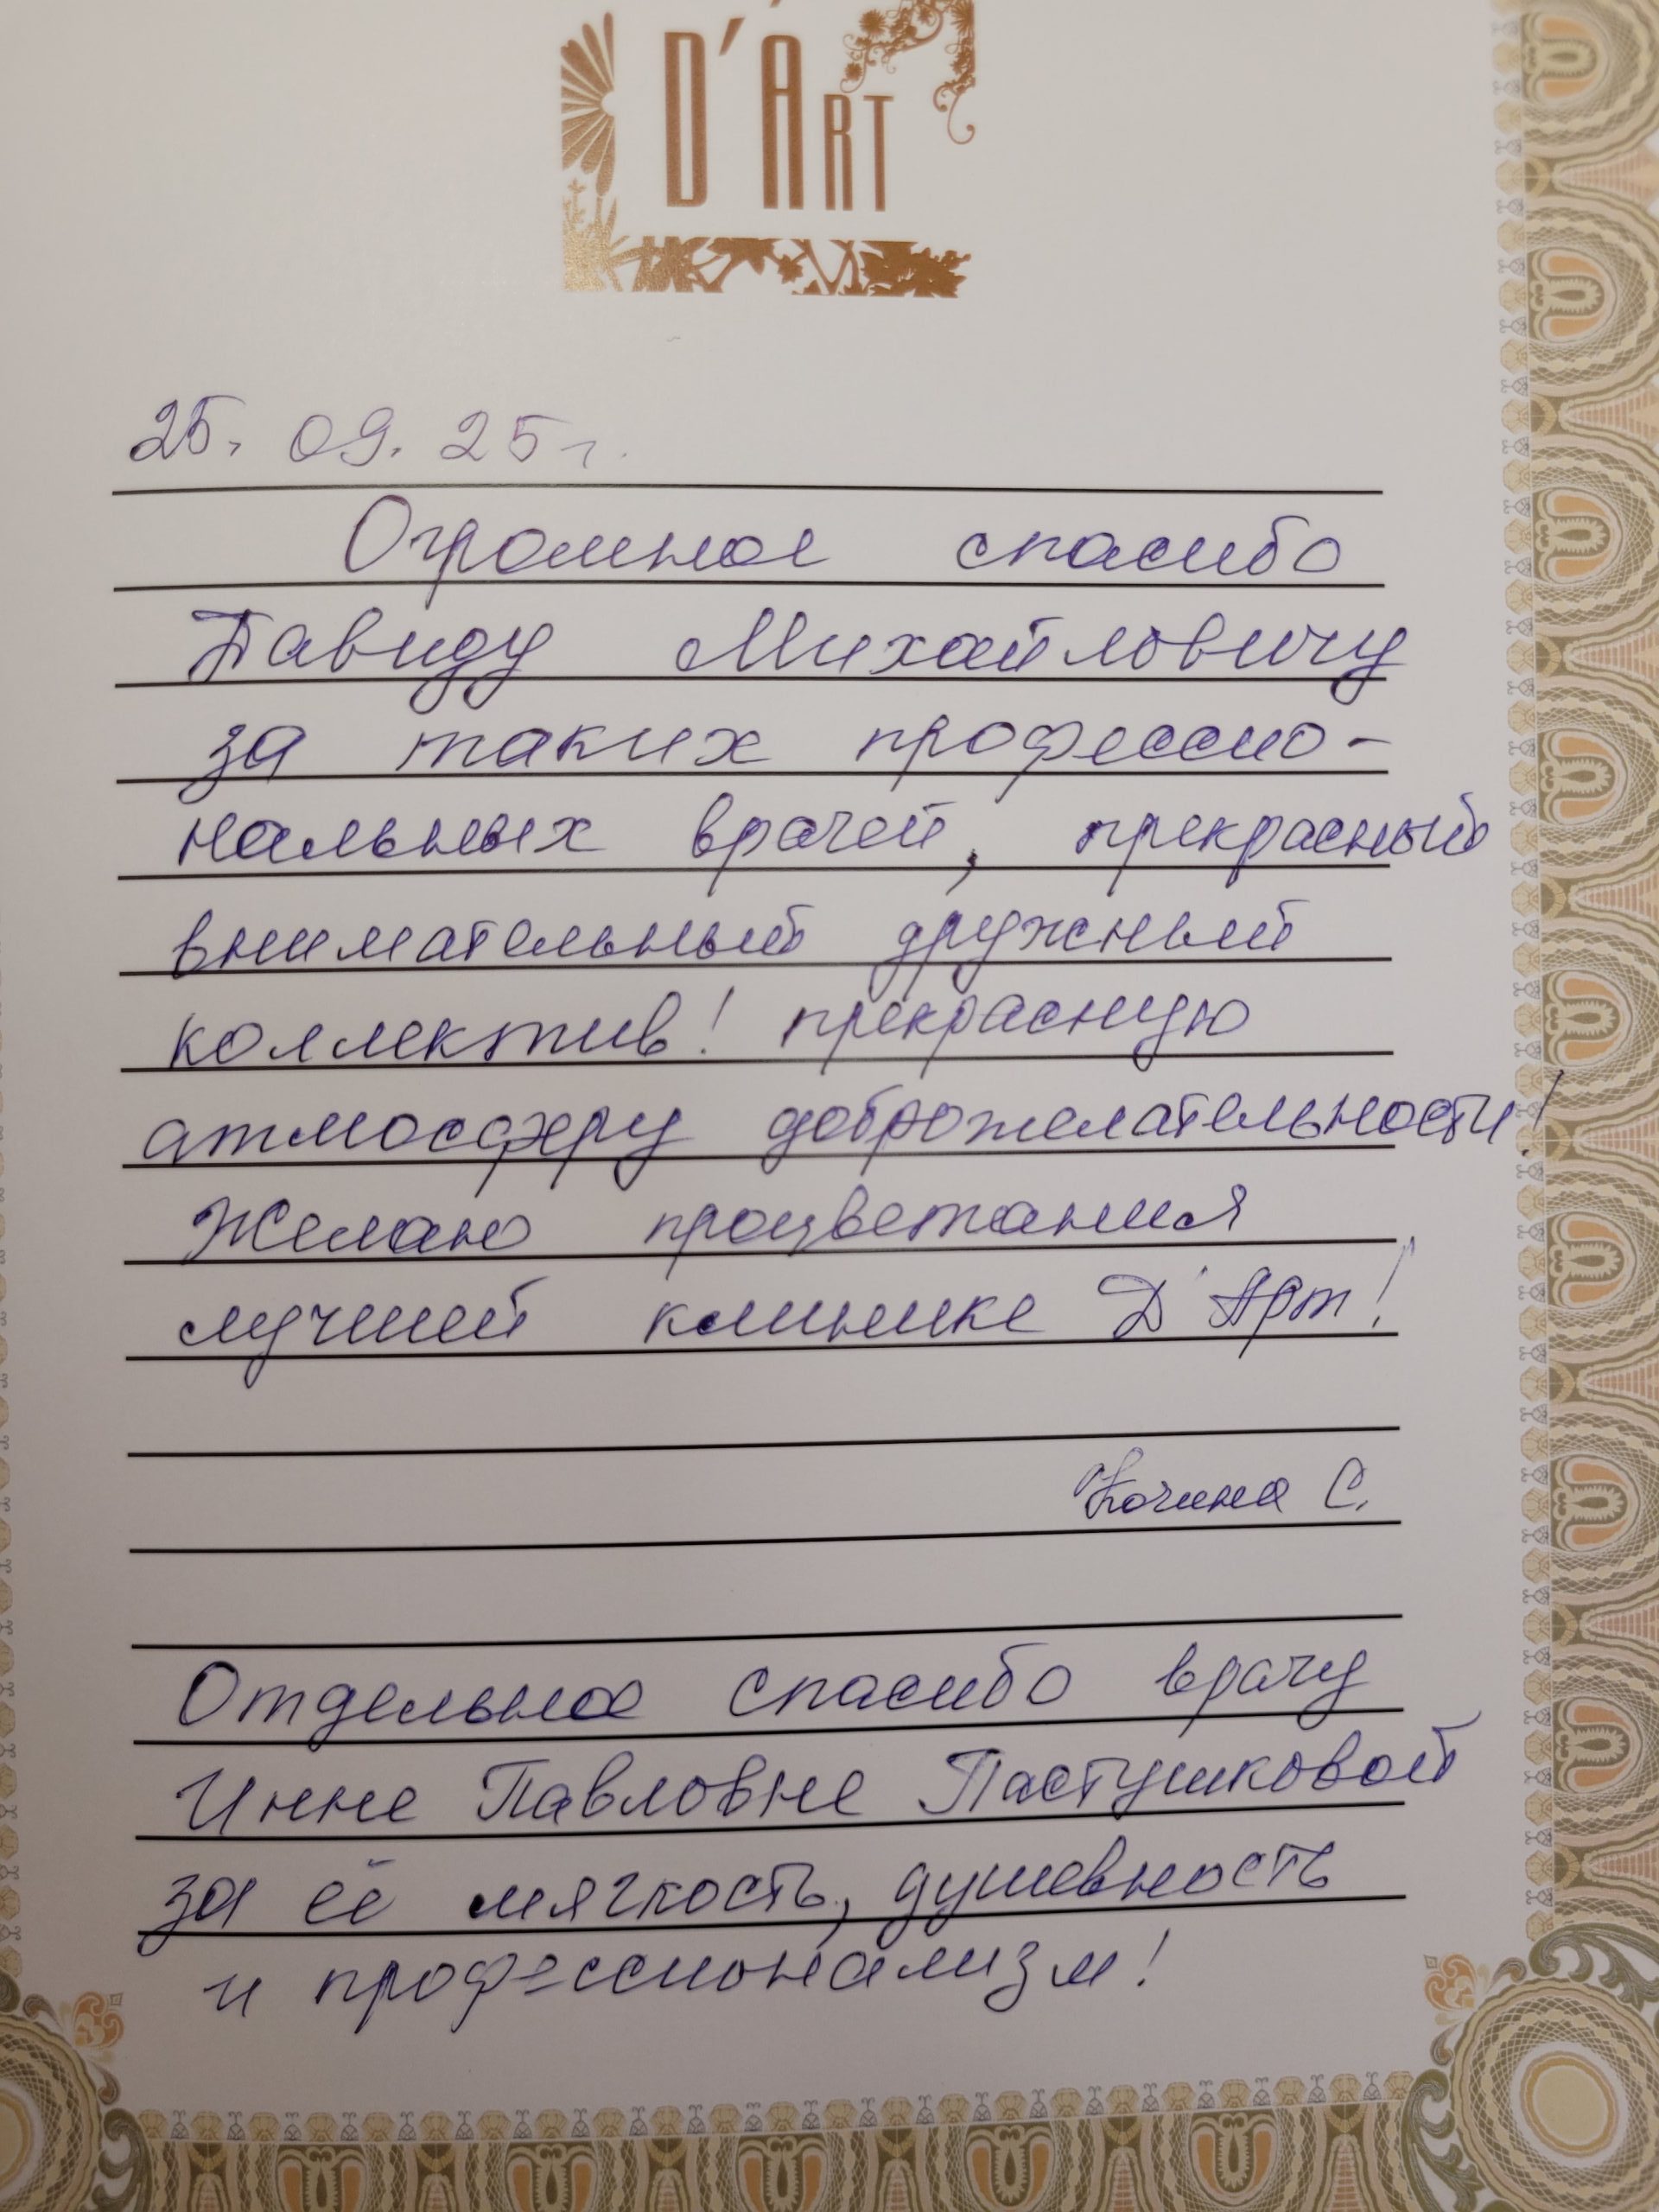 D'ART
25.09.25г.
Огромное спасибо
Давиду Михайловичу
за таких профессио-
нальных врачей, прекрасный
внимательный дружный
коллектив! прекрасную
атмосферу доброжелательности!
Желаю процветания
лучшей клинике Д'Арт!
Кочина С.
Отдельное спасибо врачу
Инне Павловне Пастушковой
за её мягкость, душевность
и профессионализм!